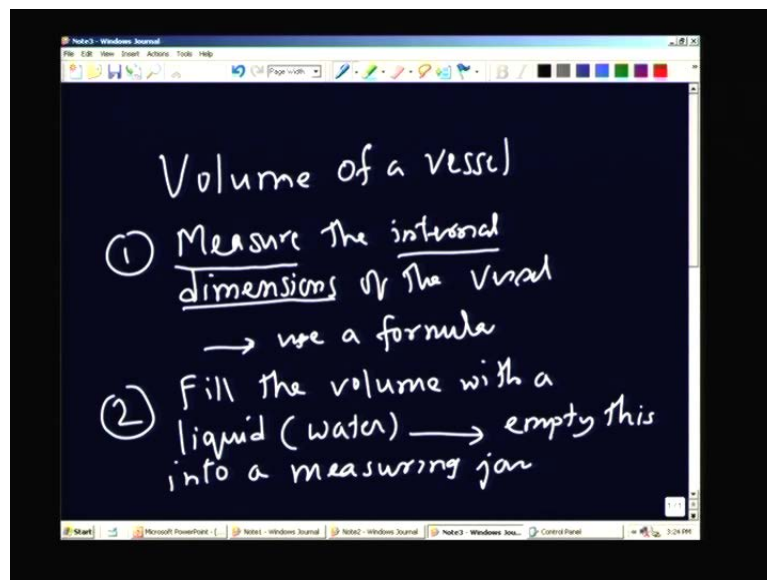 Note3 - Windows Journal
File Edit View Insert Actions Tools Help
Page Width
B I
Volume of a vessel
1 Measure the internal
dimensions of the vessel
→ use a formula
2 Fill the volume with a
liquid (water) → empty this
into a measuring jar
1/1
Start Microsoft PowerPoint - [... Note1 - Windows Journal Note2 - Windows Journal Note3 - Windows Jou... Control Panel 3:24 PM